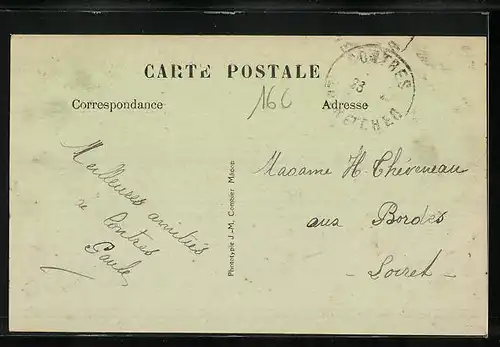 CARTE POSTALE
Correspondance
Adresse
160
CONTRES
23
LOIR-ET-CHER
Meilleures amitiés
de Contres
Paule
Madame H. Théveneau
aux Bordes
- Loiret -
Phototypie J.-M. Combier Mâcon